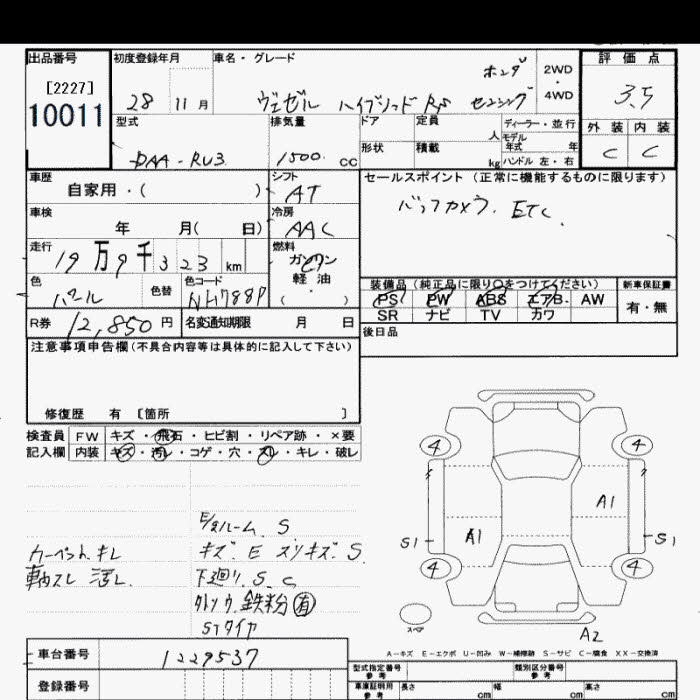 出品番号 初度登録年月 車名・グレード 評価点
[2227] ホンダ 2WD・4WD 3.5
10011 28 11月 ヴェゼル ハイブリッド RS センシング
外装 内装
C C
型式 排気量 ドア 定員 人 ディーラー・並行
モデル年式 年
DAA-RU3 1500 cc 形状 積載 kg ハンドル 左・右
車歴 シフト セールスポイント(正常に機能するものに限ります)
自家用・( ) AT
バックカメラ. ETC.
車検 冷房
年 月( 日) AAC
走行 燃料
19万9千323km ガソリン
軽油
( )
色 色替 色コード 装備品(純正品に限り○をつけてください) 新車保証書
パール NH788P PS PW ABS エアB AW 有・無
SR ナビ TV カワ
R券 12,850円 名変通知期限 月 日 後日品
注意事項申告欄(不具合内容等は具体的に記入して下さい)
修復歴 有 〔箇所 〕
検査員 FW キズ・飛石・ヒビ割・リペア跡・×要
記入欄 内装 キズ・汚レ・コゲ・穴・スレ・キレ・破レ
4 4
A1
A1
S1 S1
4 4
スペア
A2
ルーム S
カーペット キレ キズ. E スリキズ. S
スレ 汚レ 下廻り. S. C
鉄粉 有
STタイヤ
A-キズ E-エクボ U-凹み W-補修跡 S-サビ C-腐食 XX-交換済
車台番号 1229537
型式指定番号 参考 類別区分番号 参考
登録番号 車庫証明用 参考 長さ cm 幅 cm 高さ cm